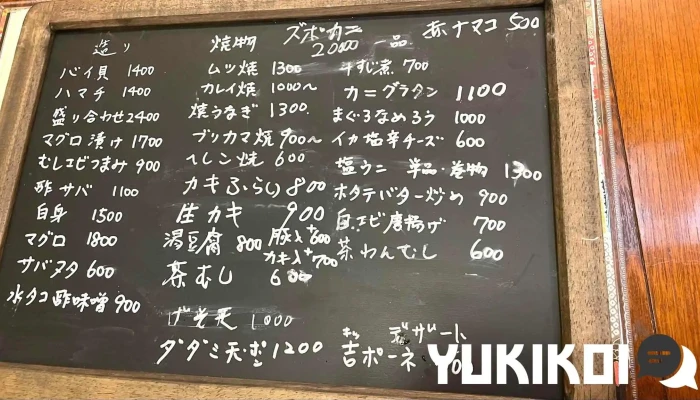 造り
バイ貝 1400
ハマチ 1400
盛り合わせ 2400
マグロ漬け 1700
むしエビつまみ 900
酢サバ 1100
白身 1500
マグロ 1800
サバヌタ 600
水タコ酢味噌 900
焼物
ムツ焼 1300
カレイ焼 1000〜
焼うなぎ 1300
ブリカマ焼 900〜
へレン焼 600
カキふらい 800
生カキ 900
湯豆腐 800 豚入+600
カキ入+700
茶むし 600
げそ天 1000
ダダミ天・ポン 1200
ズボガニ
2000
一品
牛すじ煮 700
カニグラタン 1100
まぐろなめろう 1000
イカ塩辛チーズ 600
塩ウニ 単品・巻物 1300
ホタテバター炒め 900
白エビ唐揚げ 700
茶わんむし 600
赤ナマコ 500
デザート
キッ
吉ポーネ
YUKIKOI